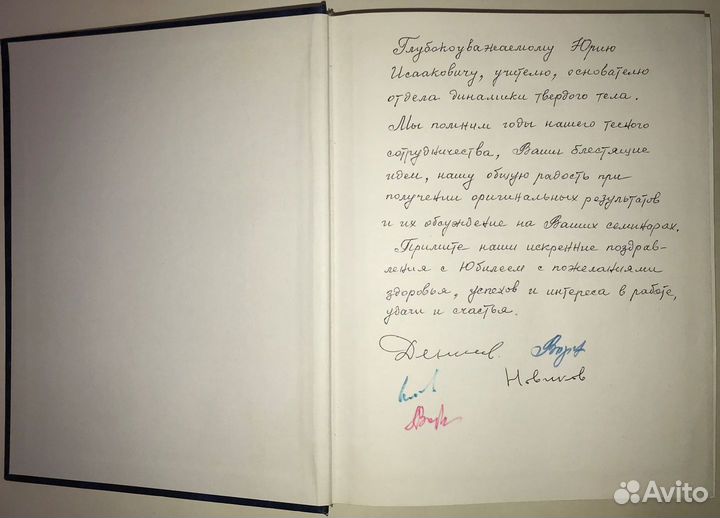 Глубокоуважаемому Юрию
Исааковичу, учителю, основателю
отдела динамики твердого тела.
Мы помним годы нашего тесного
сотрудничества, Ваши блестящие
идеи, нашу общую радость при
получении оригинальных результатов
и их обсуждение на Ваших семинарах.
Примите наши искренние поздрав-
ления с Юбилеем с пожеланиями
здоровья, успехов и интереса в работе,
удачи и счастья.
Новиков
Avito